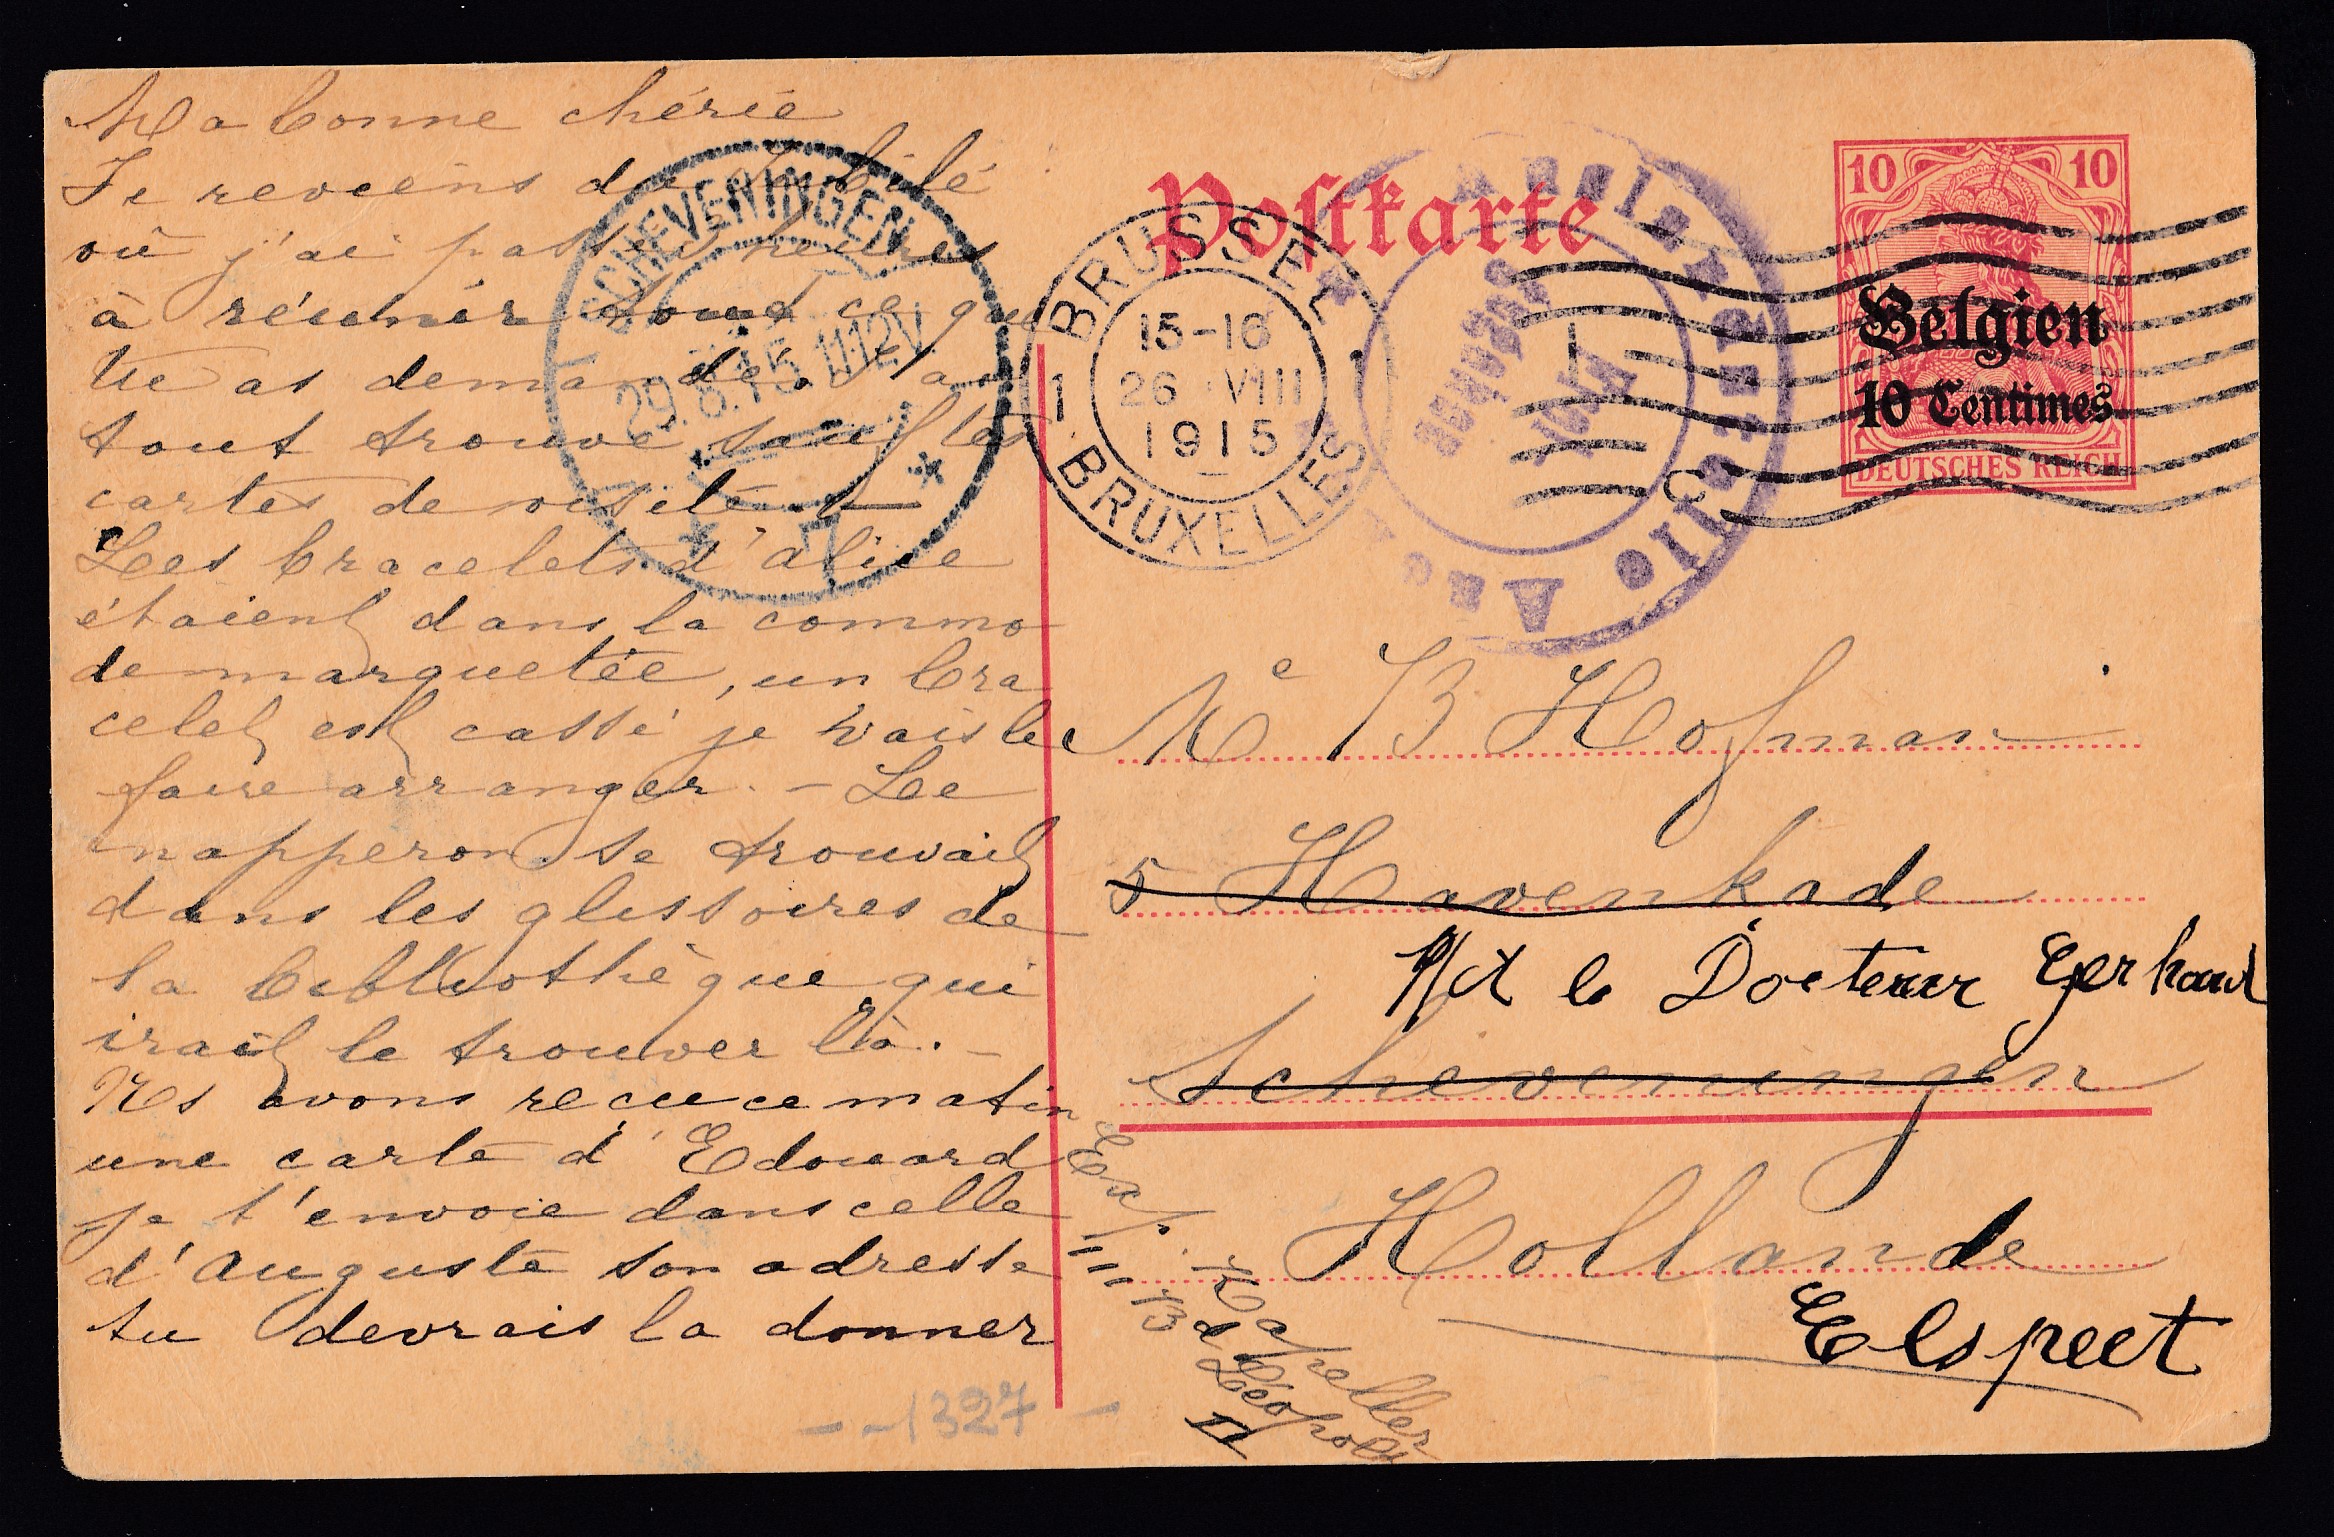 Ma bonne chérie
Je reviens du Jubilé
où j'ai passé heures
à réunir tout ce que
tu as demandé. J'ai
tout trouvé sauf les
cartes de visite. —
Les bracelets d'Alice
étaient dans la commo
de marquetée, un bra
celet est cassé je vais le
faire arranger. — Le
napperon se trouvait
dans les glissoires de
la bibliothèque qui
irait le trouver là. —
Ns avons reçu ce matin
une carte d'Edouard
je t'envoie dans celle
d'Auguste son adresse
tu devrais la donner
- - 1327 -
SCHEVENINGEN
29.8.15.11-12V.
* 7 *
Postkarte
BRUSSEL
15-16
26 VIII
1915
1 1
BRUXELLES
Auslandsstelle
Aachen
10 10
Belgien
10 Centimes
DEUTSCHES REICH
Me B Hofman
5 Havenkade
le Docteur Gerhard
Scheveningen
Hollande
Elspeet
Exp. Kapeller
113 Bd Léopold
II